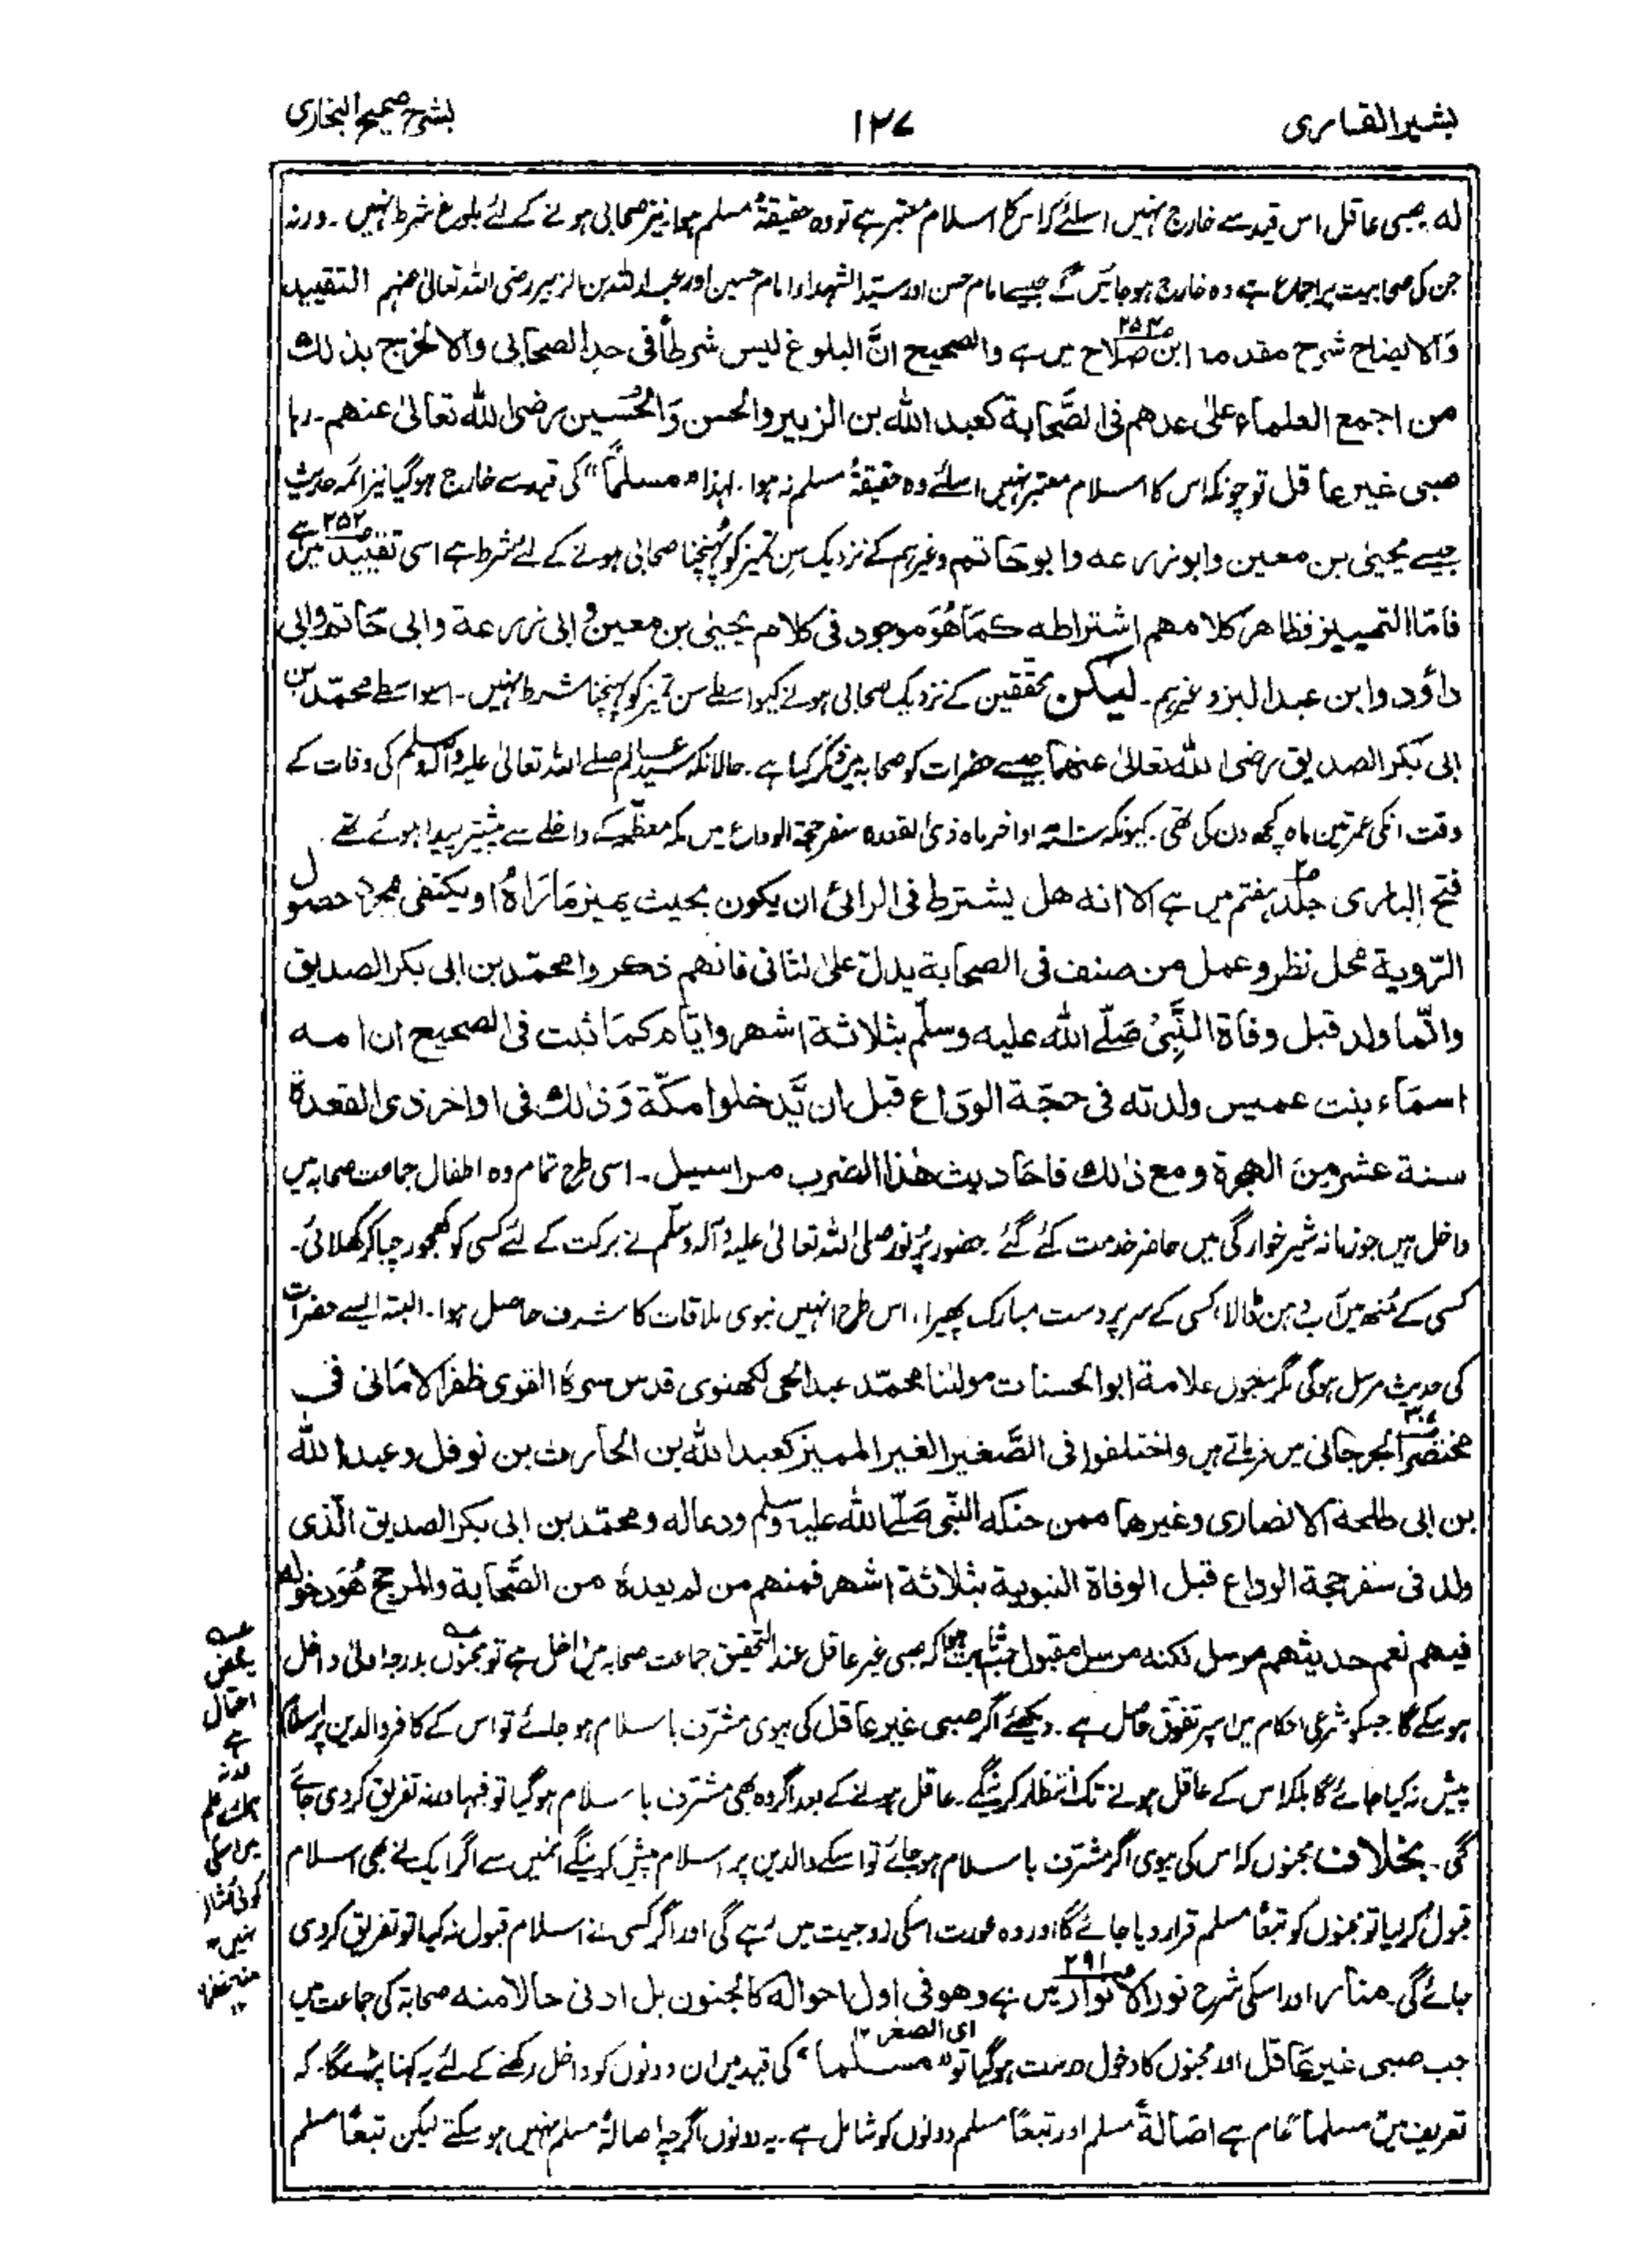 بشیر القاری ۱۲۷ بشرح صحیح البخاری
لہ صبی عاقل اس قید سے خارج نہیں اسلئے کہ اس کا اسلام معتبر ہے تو وہ حقیقۃً مسلم ہوا نیز صحابی ہونے کے لئے بلوغ شرط نہیں ۔ ورنہ
جن کی صحابیت پر اجماع ہے وہ خارج ہو جائیں گے جیسے امام حسن اور سید الشہداء امام حسین اور عبد اللہ بن الزبیر رضی اللہ تعالیٰ عنہم التقیید
والایضاح شرح مقدمہ ابن صلاح ص۲۵۲ میں ہے والصحیح انّ البلوغ لیس شرطاً فی حد الصحابی والا لخرج بذلك
من اجمع العلماء علیٰ عدهم فی الصَّحابة کعبد اللہ بن الزبیر والحسن وَالحُسین رضی اللہ تعالیٰ عنهم ۔ رہا
صبی غیر عاقل تو چونکہ اس کا اسلام معتبر نہیں اسلئے وہ حقیقۃً مسلم نہ ہوا ۔ لہذا " مسلمًا " کی قید سے خارج ہو گیا نیز ائمہ حدیث
جیسے یحییٰ بن معین وابو زرعہ وابو حاتم وغیرہم کے نزدیک سِن تمیز کو پہنچنا صحابی ہونے کے لئے شرط ہے اسی تقیید ص۲۵۲ میں ہے
فامّا التمییز فظاهر کلامهم اشتراطه کمَا هُوَ موجود فی کلام یحییٰ بن معین وابی زرعة وابی حَاتم وابی
داؤد وابن عبد البر وغیرہم ۔ لیکن محققین کے نزدیک صحابی ہونے کیواسطے سن تمیز کو پہنچنا شرط نہیں ۔ اسیواسطے محمّد بن
ابی بکر الصدیق رضی اللہ تعالیٰ عنہما جیسے حضرات کو صحابہ میں ذکر کیا ہے ۔ حالانکہ سیدِ عالم صلے اللہ تعالیٰ علیہ وآلہ وسلم کی وفات کے
وقت انکی عمر تین ماہ کچھ دن کی تھی ۔ کیونکہ سنہ ۱۰ھ اواخر ماہ ذی القعدہ سفر حجۃ الوداع میں مکہ معظّمہ کے داخلے سے پیشتر پیدا ہوئے تھے ۔
فتح الباری جلد ہفتم ص۲ میں ہے الا انه هل یشترط فی الرائی ان یکون بحیث یمیز مَا رَاٰهُ او یکتفی بمجرد حصول
الرّویة محل نظر وعمل من صنف فی الصحابة یدلّ علیٰ الثانی فانهم ذکروا محمّد بن ابی بکر الصدیق
وانّما ولد قبل وفاة النَّبِیّ صَلّے اللہ علیه وسلّم بثلاثة اشهر وایّام کمَا ثبت فی الصحیح ان امه
اسمَاء بنت عمیس ولدته فی حجّة الوداع قبل ان یَّدخلوا مکّة وَذٰلك فی اواخر ذی القعدة
سنة عشر مِن الهجرة ومع ذٰلك فاحَادیث هٰذا الضرب مراسیل ۔ اسی طرح تمام وہ اطفال جماعت صحابہ میں
داخل ہیں جو زمانہ شیر خوارگی میں حاضر خدمت کئے گئے ۔ حضور پُر نور صلی اللہ تعالیٰ علیہ وآلہ وسلّم نے برکت کے لئے کسی کو کھجور چبا کر کھلائی ۔
کسی کے مُنھ میں آب دہن ڈالا ، کسی کے سر پر دست مبارک پھیرا ، اس طرح انہیں نبوی ملاقات کا شرف حاصل ہوا ۔ البتہ ایسے حضرات
کی حدیث مرسل ہوگی مگر مقبول علامۃ ابوالحسنات مولٰنا محمّد عبد الحی لکھنوی قدس سرہ القوی ظفر الامَانی فی
مختصر الجرجانی میں فرماتے ہیں واختلفوا فی الصَّغیر الغیر الممیز کعبد اللہ بن الحارث بن نوفل وعبد اللہ
بن ابی طلحة الانصاری وغیرها ممن حنکه النّبی صَلّے اللہ علیہ وسلم ودعا له ومحمّد بن ابی بکر الصدیق الّذی
ولد فی سفر حجة الوداع قبل الوفاة النبویة بثلاثة اشهر فمنهم من لم یعده من الصَّحابة والمرجح هُوَ دخولهم
فیهم نعم حدیثهم مرسل لکنه مرسل مقبول جب ثابت ہوا کہ صبی غیر عاقل عند التحقیق جماعت صحابہ میں داخل ہے تو مجنوں بدرجہ اولیٰ داخل
ہو سکے گا جبکہ شرعی احکام میں اسپر تفوّق حاصل ہے ۔ دیکھئے اگر صبی غیر عاقل کی بیوی مشرف باسلام ہو جائے تو اس کے کافر والدین پر اسلام
پیش نہ کیا جائے گا بلکہ اس کے عاقل ہونے تک انتظار کرینگے ۔ عاقل ہونے کے بعد اگر وہ بھی مشرف باسلام ہو گیا تو فبہا ورنہ تفریق کر دی جائے
گی ۔ بخلاف مجنوں کہ اس کی بیوی اگر مشرف باسلام ہو جائے تو اسکے والدین پر اسلام پیش کرینگے انمیں سے اگر ایک نے بھی اسلام
قبول کر لیا تو مجنوں کو تبعًا مسلم قرار دیا جائے گا اور وہ عورت اسکی زوجیت میں رہے گی اور اگر کسی نے اسلام قبول نہ کیا تو تفریق کر دی
جائے گی ۔ منار اور اسکی شرح نور الانوار ص۲۹۱ میں ہے وهو فی اول احواله کالجنون بل ادنی حالا منه صحابہ کی جماعت میں
ای الصغر ۱۲
جب صبی غیر عاقل اور مجنوں کا دخول درست ہو گیا تو " مسلما " کی قید میں ان دونوں کو داخل رکھنے کے لئے یہ کہنا پڑے گا ۔ کہ
تعریف میں مسلماً عام ہے اصَالۃً مسلم اور تبعًا مسلم دونوں کو شامل ہے ۔ یہ دونوں اگرچہ اصالۃً مسلم نہیں ہو سکتے لیکن تبعًا مسلم
یہ محض
احتمال
ہے
ورنہ
ہمارے علم
میں اسکی
کوئی مثال
نہیں ۔